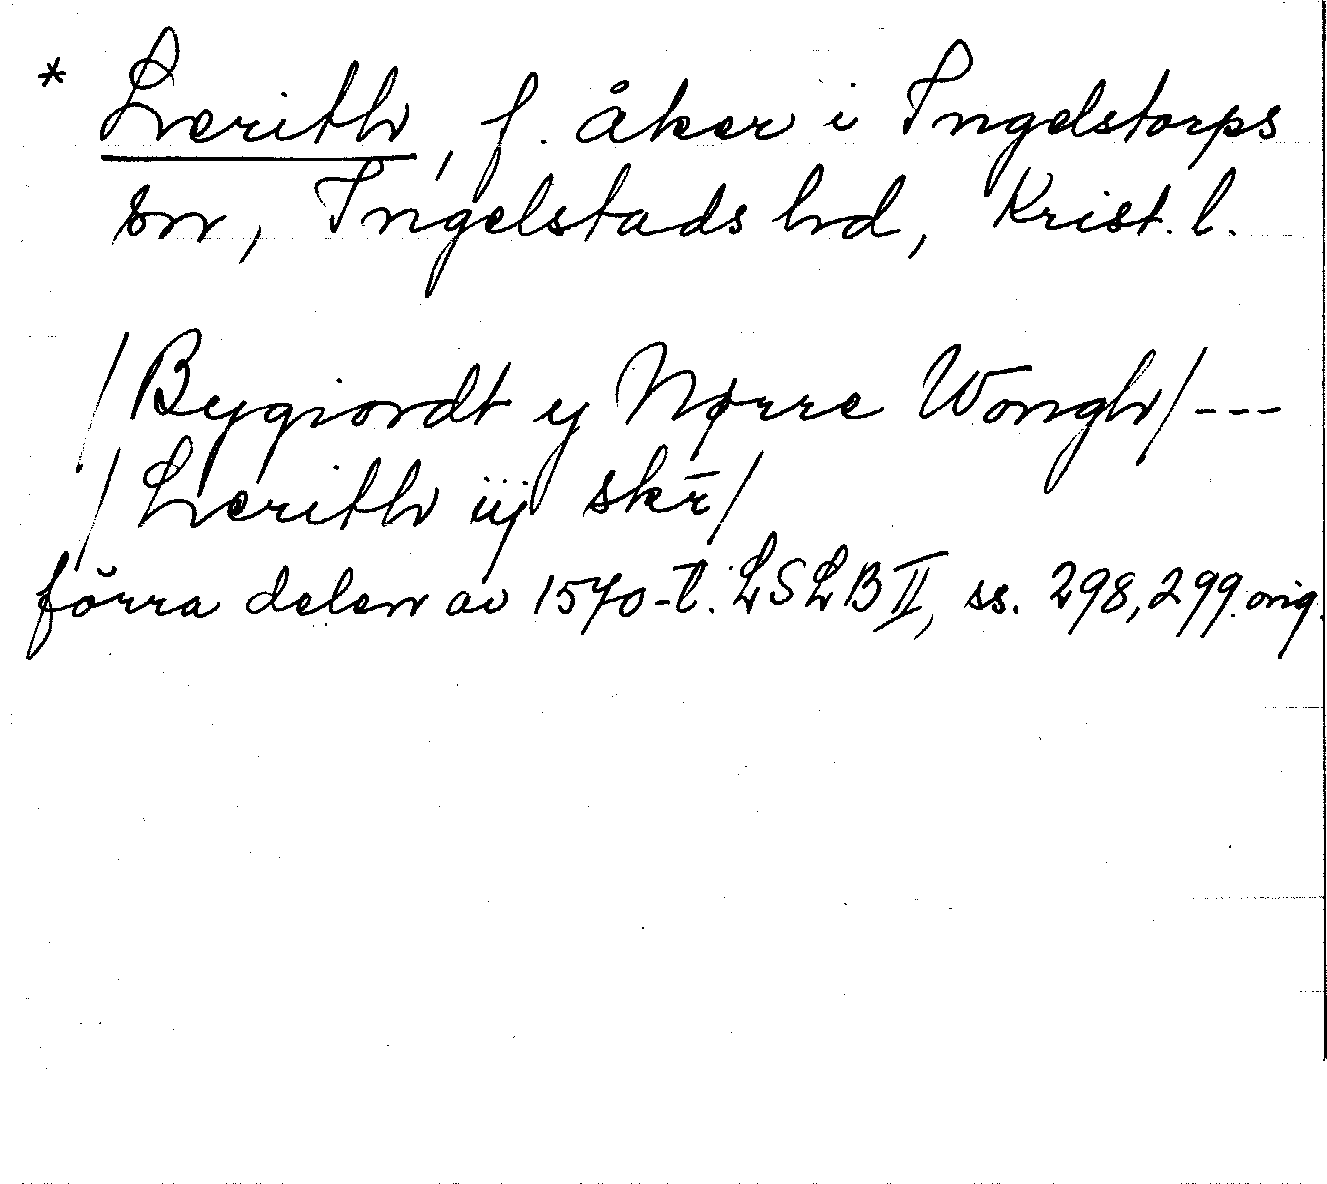 * Lerith, f. åker i Ingelstorps
sn, Ingelstads hd, Krist. l.
/Bygiordt y Nørre Wongh/---
/Lerith iij skr̄/
förra delen av 1570-t. LSLB II, ss. 298, 299. orig.